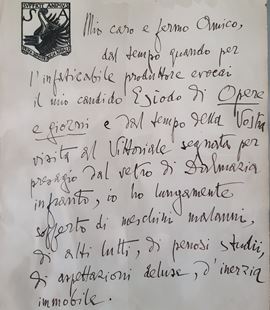 SVFFICIT ANIMVS
Mio caro e fermo Amico,
dal tempo quando per
l'infaticabile produttore evocai
il mio candido Esiodo di Opere
e giorni e dal tempo della Vostra
visita al Vittoriale segnata per
presagio dal vetro di Dalmazia
infranto, io ho lungamente
sofferto di meschini malanni,
di alti lutti, di penosi studii,
di aspettazioni deluse, d'inerzia
immobile.